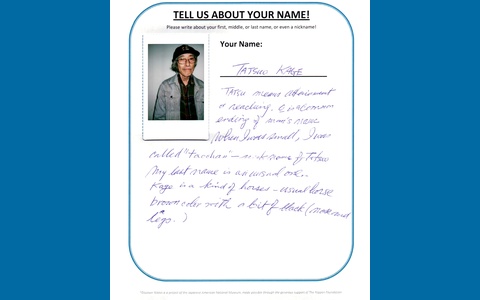 TELL US ABOUT YOUR NAME!
Please write about your first, middle, or last name, or even a nickname!
Your Name:
TATSUO KAGE
TATSU means attainment
or reaching. O is common
ending of man's name
When I was small, I was
called "Tacchan" — of Tatsuo
My last name is an unusual one.
Kage is a kind of horses – usual horse
brown color with a bit of black (
legs.)